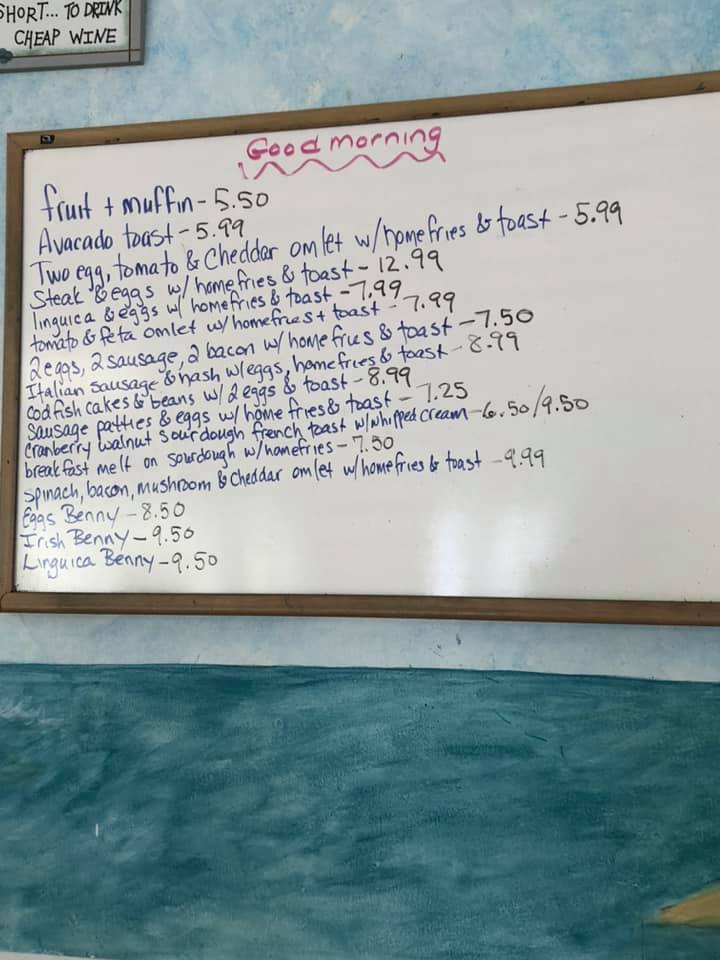 SHORT... TO DRINK
CHEAP WINE
Good morning
fruit + muffin - 5.50
Avacado toast - 5.99
Two egg, tomato & Cheddar omlet w/homefries & toast - 5.99
Steak & eggs w/ homefries & toast - 12.99
linguica & eggs w/ homefries & toast - 7.99
tomato & feta omlet w/homefries + toast - 7.99
2 eggs, 2 sausage, 2 bacon w/ homefries & toast - 7.50
Italian sausage & hash w/eggs, homefries & toast - 8.99
codfish cakes & beans w/ 2 eggs & toast - 8.99
Sausage patties & eggs w/ home fries & toast - 7.25
Cranberry walnut sourdough french toast w/whipped cream - 6.50/9.50
breakfast melt on sourdough w/homefries - 7.50
Spinach, bacon, mushroom & Cheddar omlet w/homefries & toast - 9.99
Eggs Benny - 8.50
Irish Benny - 9.50
Linguica Benny - 9.50